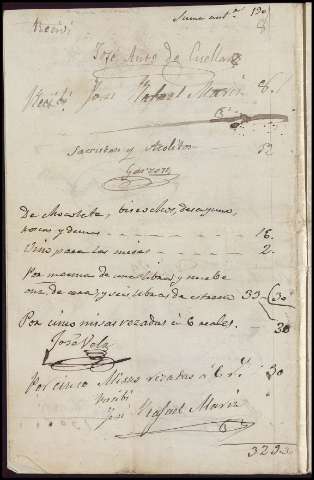 Suma antr. 130
Recivi 8
José Anto de Cuellar
Recibi José Rafael Marin 8.
Sacristan y Acolitos 12
Garzon
De chocolate, biscochos, desayuno,
roscas y demas 16.
Vino para las misas 2.
Por merma de once libras y nuebe
onz. de cera, y seis libras de estearina 33 30
Por cinco misas rezadas á 6 reales. 30
José Vela
Por cinco Misas rezadas á 6 r. 30
recibi
José Rafael Marin
323